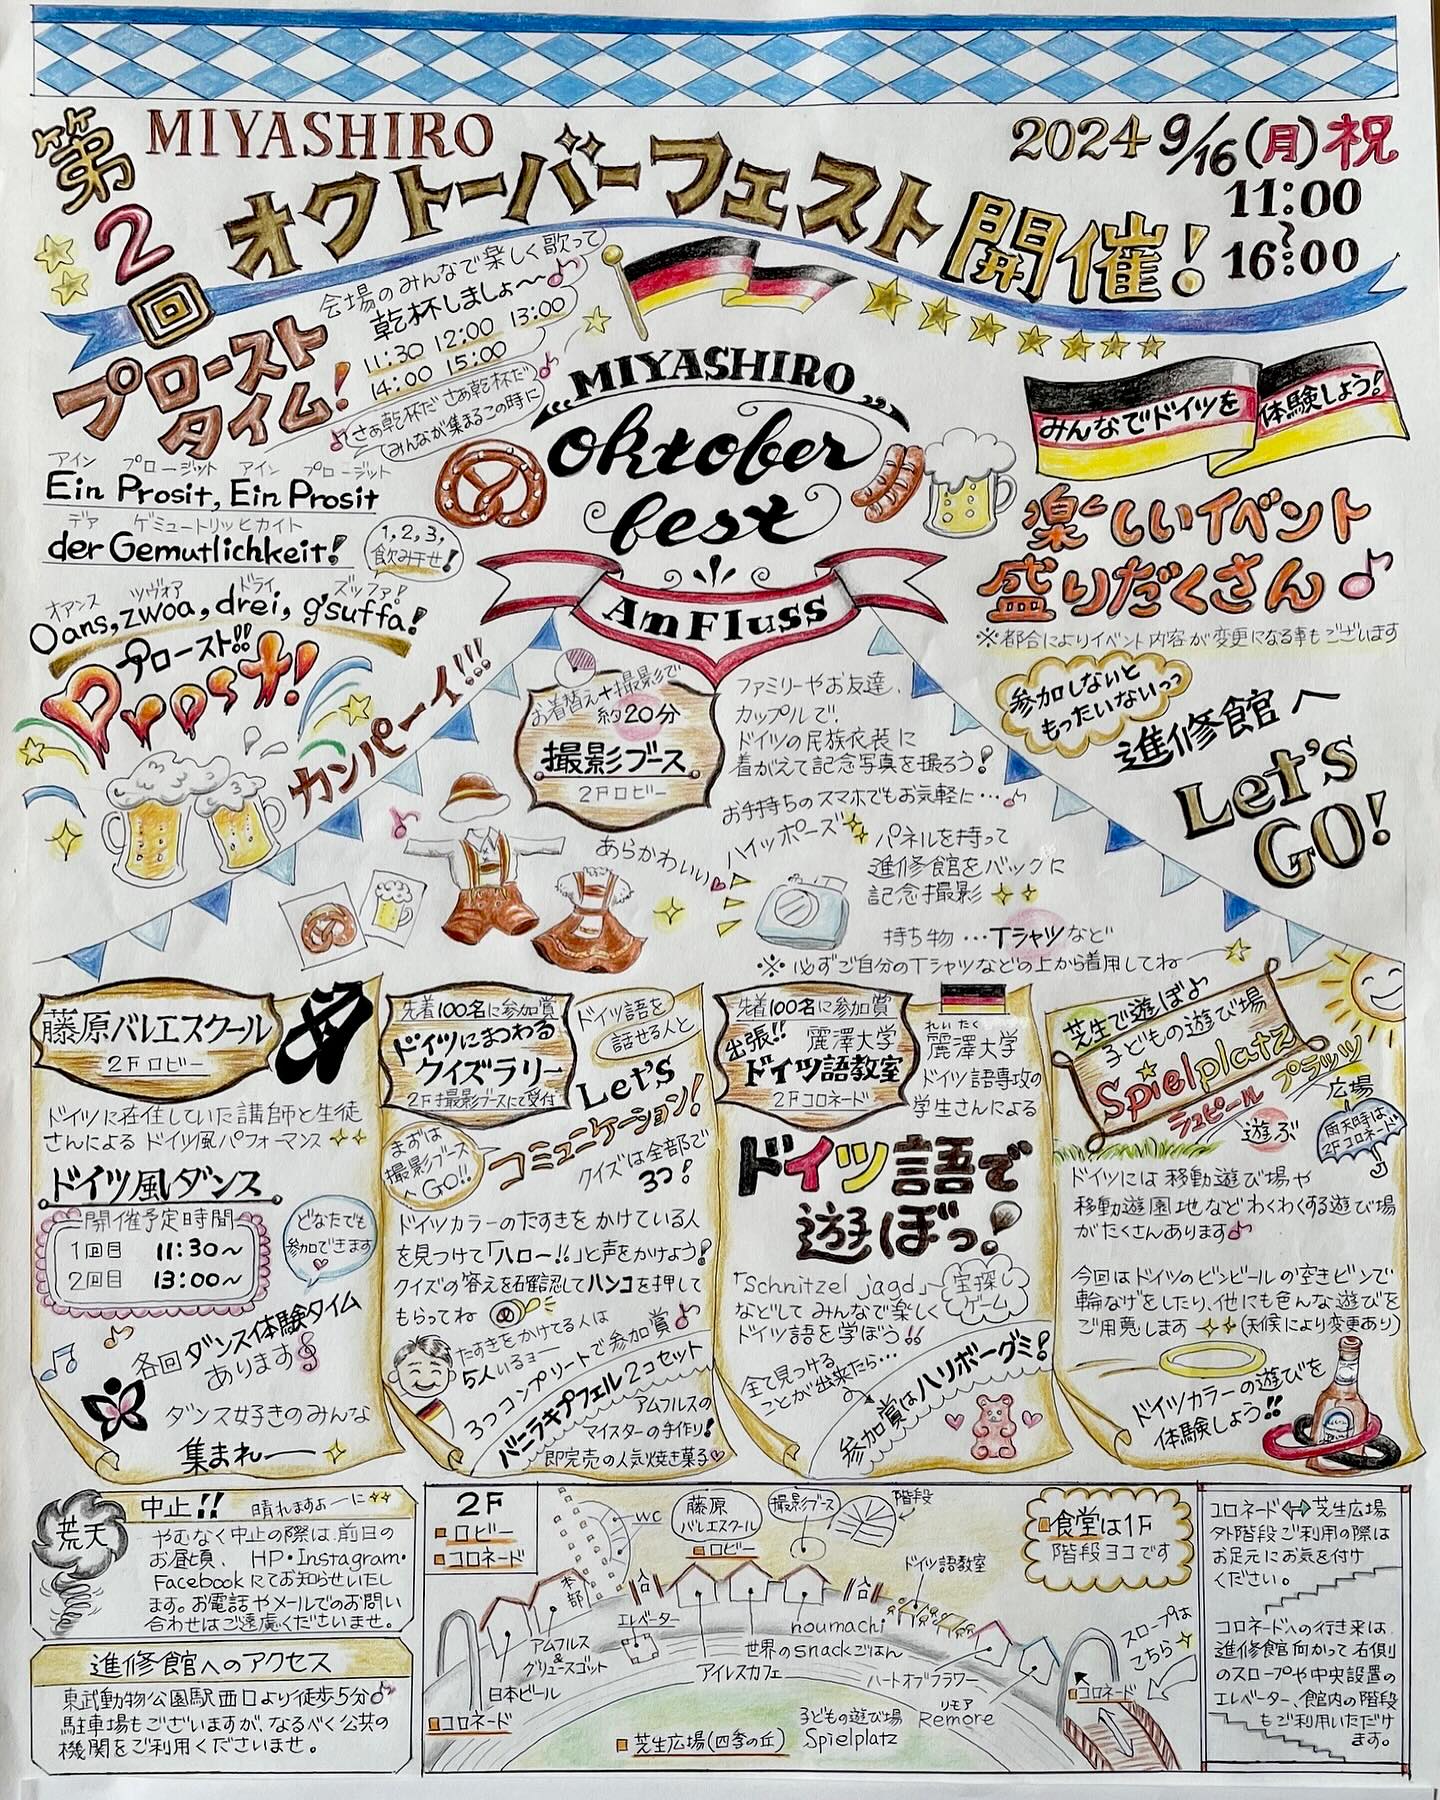 MIYASHIRO
第2回
オクトーバーフェスト開催!
2024 9/16(月)祝
11:00
〜
16:00
プロースト
タイム!
会場のみんなで楽しく歌って
乾杯しましょ〜〜♪
11:30 12:00 13:00
14:00 15:00
♪さぁ乾杯だ さぁ乾杯だ♪
みんなが集まるこの時に
アイン プロージット アイン プロージット
Ein Prosit, Ein Prosit
デア ゲミュートリッヒカイト
der Gemutlichkeit!
1,2,3,
飲み干せ!
オアンス ツヴォア ドライ ズッファ!
Oans, zwoa, drei, g'suffa!
プロースト!!
Prost!
カンパーイ!!!
MIYASHIRO
oktober
best
Am Fluss
みんなでドイツを
体験しよう!
楽しいイベント
盛りだくさん♪
※都合によりイベント内容が変更になる事もございます
参加しないと
もったいないっっ
進修館へ
Let's
GO!
お着替え+撮影で
約20分
撮影ブース
2Fロビー
ファミリーやお友達、
カップルで、
ドイツの民族衣装に
着がえて記念写真を撮ろう!
お手持ちのスマホでもお気軽に…♪
ハイッポーズ
あらかわいい
パネルを持って
進修館をバックに
記念撮影
持ち物…Tシャツなど
※必ずご自分のTシャツなどの上から着用してね
藤原バレエスクール
2Fロビー
ドイツに在住していた講師と生徒
さんによるドイツ風パフォーマンス
ドイツ風ダンス
開催予定時間
1回目 11:30〜
2回目 13:00〜
どなたでも
参加できます
各回ダンス体験タイム
あります
ダンス好きのみんな
集まれー
先着100名に参加賞
ドイツにまつわる
クイズラリー
2F撮影ブースにて受付
ドイツ語を
話せる人と
Let's
コミュニケーション!
まずは
撮影ブース
へGO!!
クイズは全部で
3つ!
ドイツカラーのたすきをかけている人
を見つけて「ハロー!!」と声をかけよう!
クイズの答えを確認してハンコを押して
もらってね
たすきをかけてる人は
5人いるョー
3つコンプリートで参加賞♪
バニラキプフェル2コセット
アムフルスの
マイスターの手作り!
即完売の人気焼き菓子
先着100名に参加賞
出張!! 麗澤大学
ドイツ語教室
2Fコロネード
れいたく
麗澤大学
ドイツ語専攻の
学生さんによる
ドイツ語で
遊ぼっ!
「Schnitzel jagd」
宝探し
ゲーム
などしてみんなで楽しく
ドイツ語を学ぼう!!
全て見つける
ことが出来たら…
参加賞はハリボーグミ!
芝生で遊ぼ♪
子どもの遊び場
Spielplatz
シュピール
プラッツ
遊ぶ
広場
雨天時は、
2Fコロネード
ドイツには移動遊び場や
移動遊園地などわくわくする遊び場
がたくさんあります♪
今回はドイツのビンビールの空きビンで
輪なげをしたり、他にも色んな遊びを
ご用意します(天候により変更あり)
ドイツカラーの遊びを
体験しよう!!
荒天
中止!! 晴れますよーに
やむなく中止の際は、前日の
お昼頃、HP・Instagram・
Facebookにてお知らせいたし
ます。お電話やメールでのお問い
合わせはご遠慮くださいませ。
進修館へのアクセス
東武動物公園駅西口より徒歩5分♪
駐車場もございますが、なるべく公共の
機関をご利用くださいませ。
2F
ロビー
コロネード
WC
藤原
バレエスクール
ロビー
撮影ブース
階段
食堂は1F
階段ヨコです
本部
エレベーター
ドイツ語教室
アムフルス
&
グリュースゴット
日本ビール
アイレスカフェ
noumachi
世界のsnackごはん
ハートオブフラワー
リモア
Remore
コロネード
芝生広場(四季の丘)
子どもの遊び場
Spielplatz
スロープは
こちら
コロネード
コロネード⇔芝生広場
外階段ご利用の際は
お足元にお気を付け
ください。
コロネードへの行き来は、
進修館向かって右側
のスロープや中央設置の
エレベーター、館内の階段
もご利用いただけ
ます。